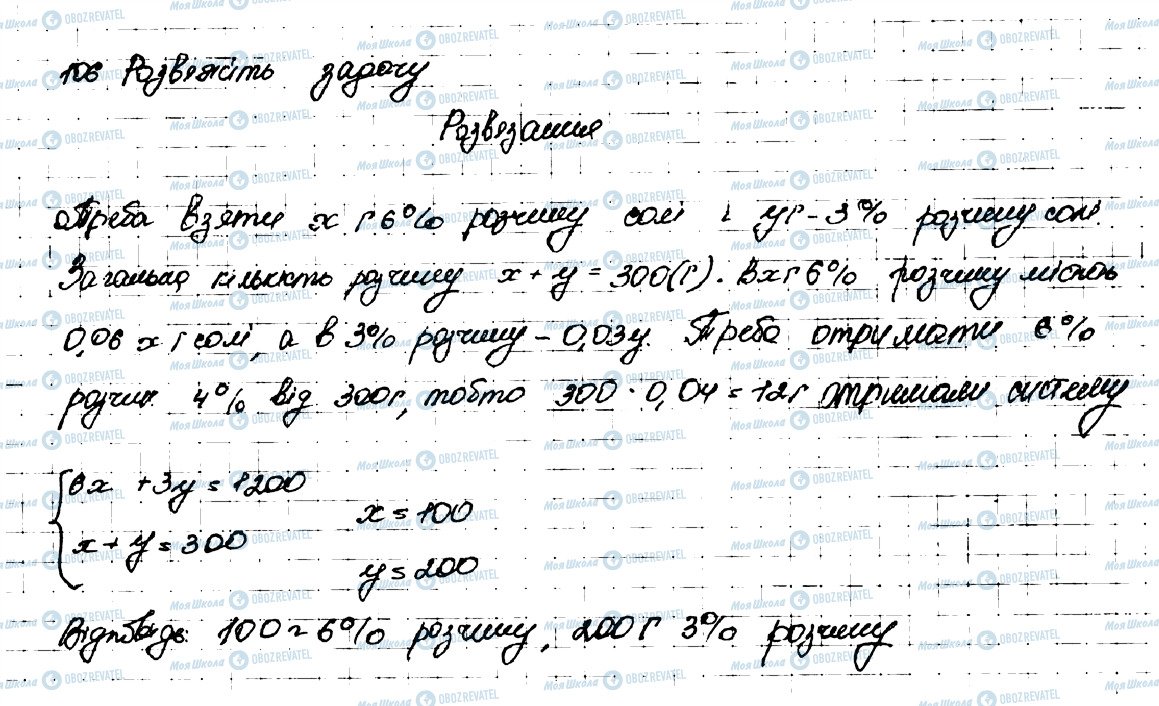 106 Розв'яжіть задачу
Розв'язання
Треба взяти x г 6% розчину солі і y г - 3% розчину солі.
Загальна кількість розчину x + y = 300(г). В x г 6% розчину містить
0,06 x г солі, а в 3% розчину - 0,03y. Треба отримати 6%
розчин 4% від 300г, тобто 300 · 0,04 = 12г отримали систему
6x + 3y = 1200
x = 100
x + y = 300
y = 200
Відповідь 100г 6% розчину, 200г 3% розчину